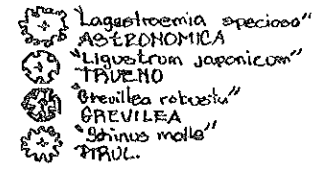 "Lagestroemia speciosa"
ASTRONOMICA
"Ligustrum japonicum"
TRUENO
"Grevillea robusta"
GREVILEA
"Schinus molle"
PIRUL.